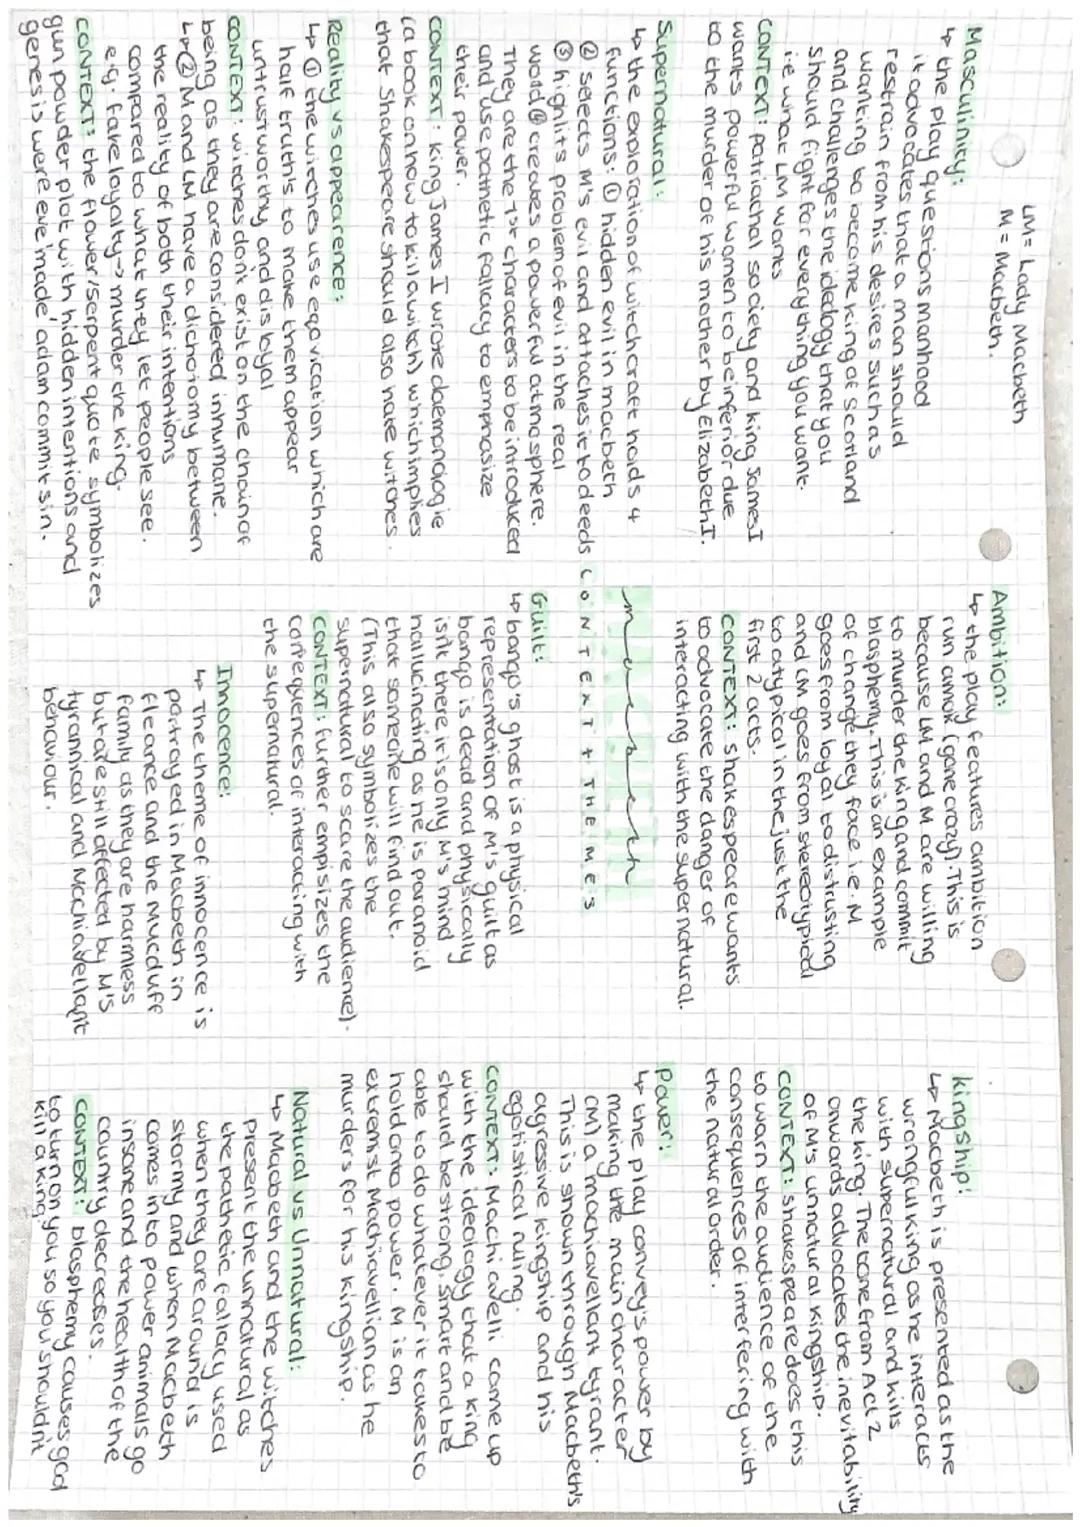 LM = Lady Macbeth
M = Macbeth.
Masculinity:
↳ the play questions manhood
it advocates that a man should
restrain from his desires such as
wanting to become king of scotland
and challenges the idealogy that you
should fight for everything you want.
i.e what LM wants
CONTEXT: patriachal society and king James I
wants powerful women to be inferior due
to the murder of his mother by Elizabeth I.
Supernatural:
↳ the exploration of witchcraft holds 4
functions: ① hidden evil in macbeth
② selects M's evil and attaches it to deeds
③ highlits problem of evil in the real
world ④ creates a powerful atmosphere.
They are the 1st characters to be introduced
and use pathetic fallacy to emphasize
their power.
CONTEXT: King James I wrote daemonologie
(a book on how to kill a witch) which implies
that Shakespeare should also hate witches.
Reality vs appearence:
↳ ① the witches use eqovication which are
half truth's to make them appear
untrustworthy and disloyal
CONTEXT: witches don't exist on the chain of
being as they are considered inhumane.
↳ ② M and LM have a dichotomy between
the reality of both their intentions
compared to what they let people see.
e.g. fake loyalty → murder the king.
CONTEXT: the flower/serpent quote symbolizes
gun powder plot with hidden intentions and
genesis were eve 'made' adam commit sin.
Ambition:
↳ the play features ambition
run amok (gone crazy). This is
because LM and M are willing
to murder the king and commit
blasphemy. This is an example
of change they face i.e. M
goes from loyal to distrusting
and LM goes from stereotypical
to atypical in the just the
first 2 acts.
CONTEXT: Shakespeare wants
to advocate the danger of
interacting with the supernatural.
MACBETH
macbeth
CONTEXT + THEMES
Guilt:
↳ banqo's ghost is a physical
representation of M's guilt as
banqo is dead and physically
isn't there it is only M's mind
hallucinating as he is paranoid
that someone will find out.
(This also symbolizes the
supernatural to scare the audience).
CONTEXT: further empisizes the
consequences of interacting with
the supernatural.
Innocence:
↳ The theme of innocence is
portrayed in Macbeth in
fleance and the Mucduff
family as they are harmless
but are still affected by M's
tyrannical and Macchiavellant
behaviour.
kingship:
↳ Macbeth is presented as the
wrongful king as he interacts
with supernatural and kills
the king. The tone from Act 2
onwards advocates the inevitability
of M's unnatural kingship.
CONTEXT: Shakespeare does this
to warn the audience of the
consequences of interfering with
the natural order.
Power:
↳ the play convey's power by
making the main character
(M) a machiavellant tyrant.
This is shown through Macbeth's
agressive kingship and his
egotistical ruling.
CONTEXT: Machiavelli came up
with the ideology that a king
should be strong, smart and be
able to do whatever it takes to
hold onto power. M is an
extremist Machiavellian as he
murders for his kingship.
Natural vs Unnatural:
↳ Macbeth and the witches
present the unnatural as
the pathetic fallacy used
when they are around is
stormy and when Macbeth
comes into power animals go
insane and the health of the
country decreases.
CONTEXT: blasphemy causes god
to turn on you so you shouldn't
kill a king.